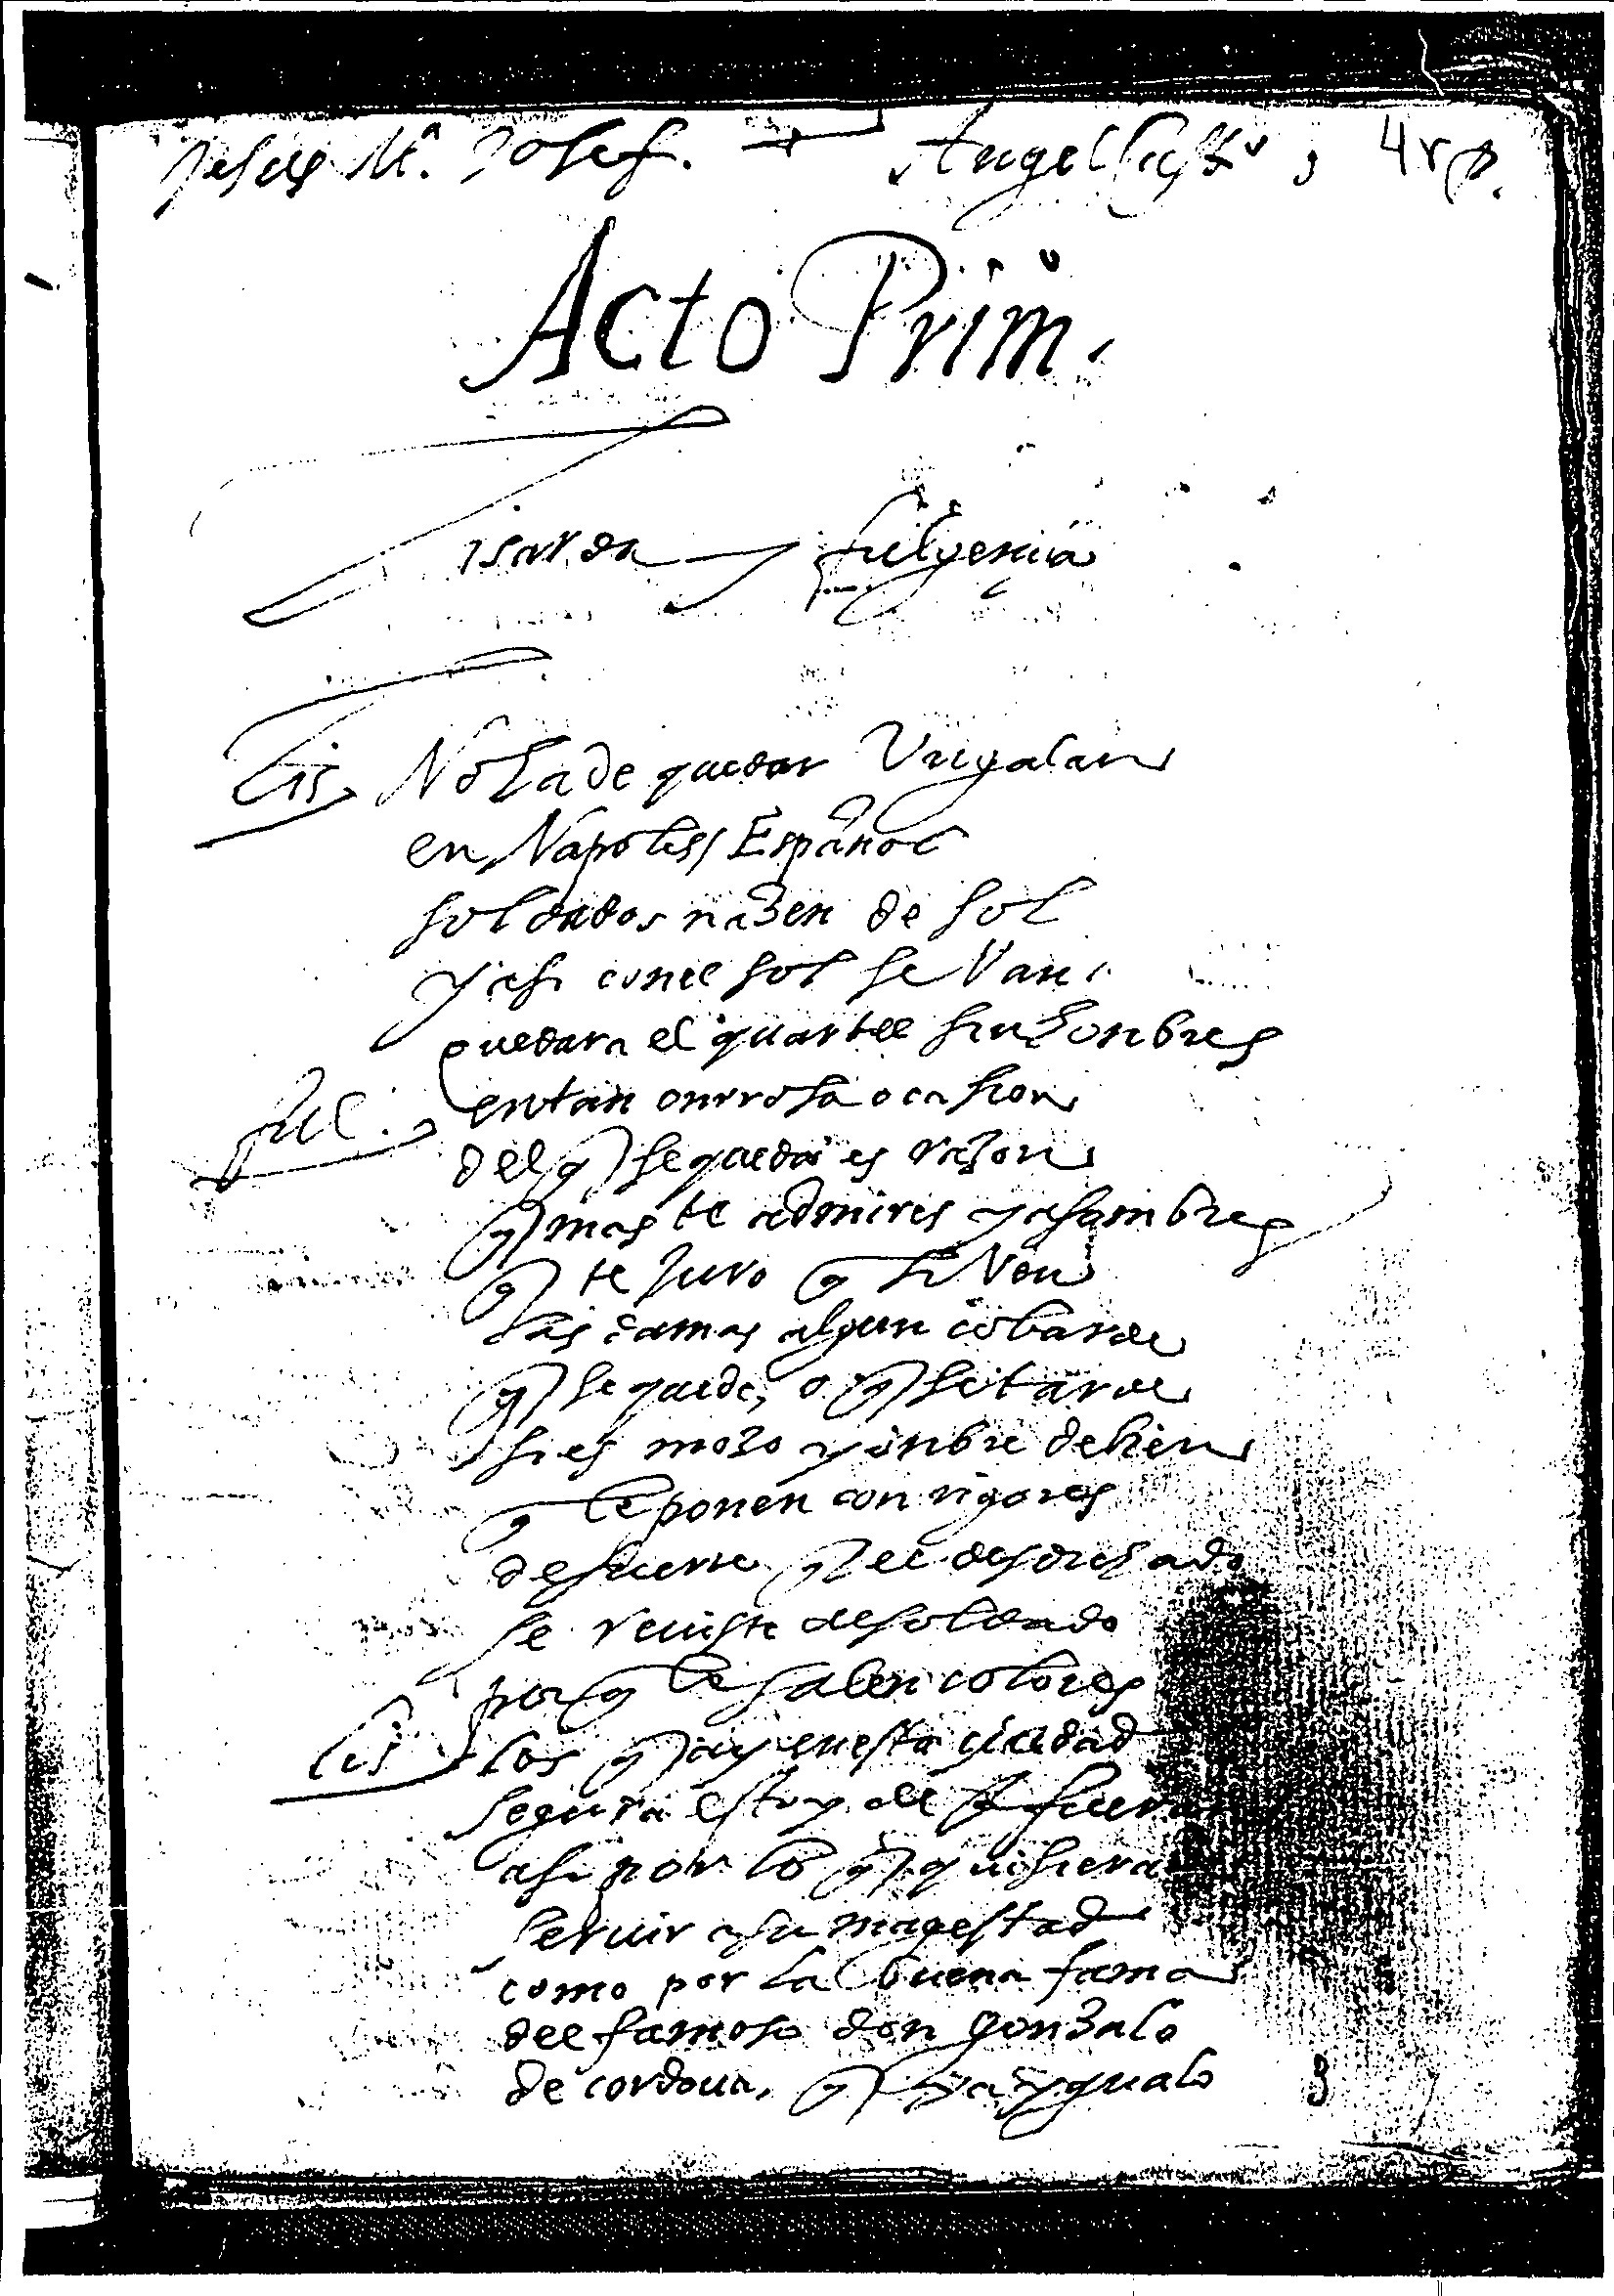 Jesus Mª. Josef. Angel Custº
Acto Primº.
Lisarda y fulgenia
Lis No ha de quedar Vn galan
en Napoles Español
soldados nazen de sol
y asi con el sol se Van
quedara el quartel sin honbres
ful. en tan onrrosa ocasion
del q se queda es razon
q mas te admires y asombres
q te Juro q si Ven
las damas algun cobarde
q se quede, o q se tarde
si es mozo y onbre de bien
q le ponen con rigores
de suerte q el desdichado
se reuiste de soldado
por q le salen colores
Lis los q ay en esta çiudad
segura estoy de q fueran
asi por lo q quisieran
seruir a su magestad
como por la buena fama
del famoso don gonzalo
de cordoua, q ya ygualo